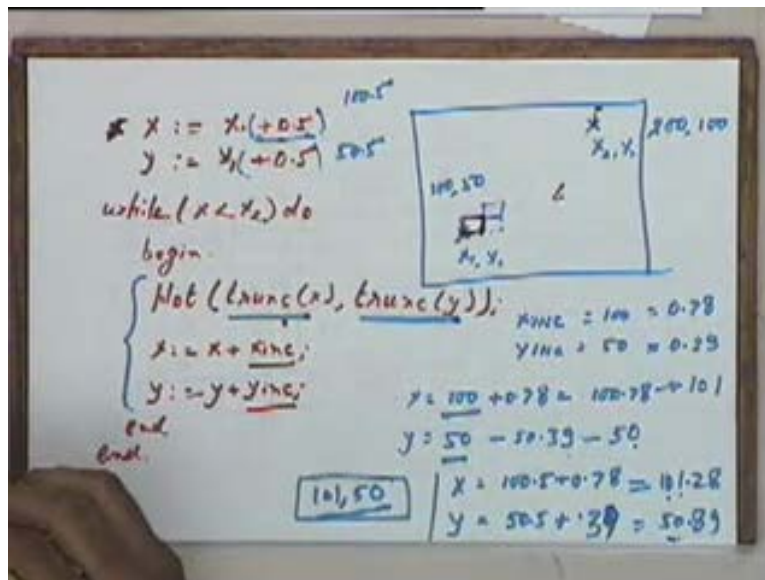 x := x₁(+0.5) 100.5
y := y₁(+0.5) 50.5
while (x < x₂) do
begin
Plot (trunc(x), trunc(y));
x := x + xinc;
y := y + yinc;
end
end.
200, 100
x₂, y₂
100, 50
x₁, y₁
XINC = 100 = 0.78
YINC = 50 = 0.39
x = 100 + 0.78 = 100.78 → 101
y = 50 - 50.39 - 50
101, 50
x = 100.5 + 0.78 = 101.28
y = 50.5 + .39 = 50.89